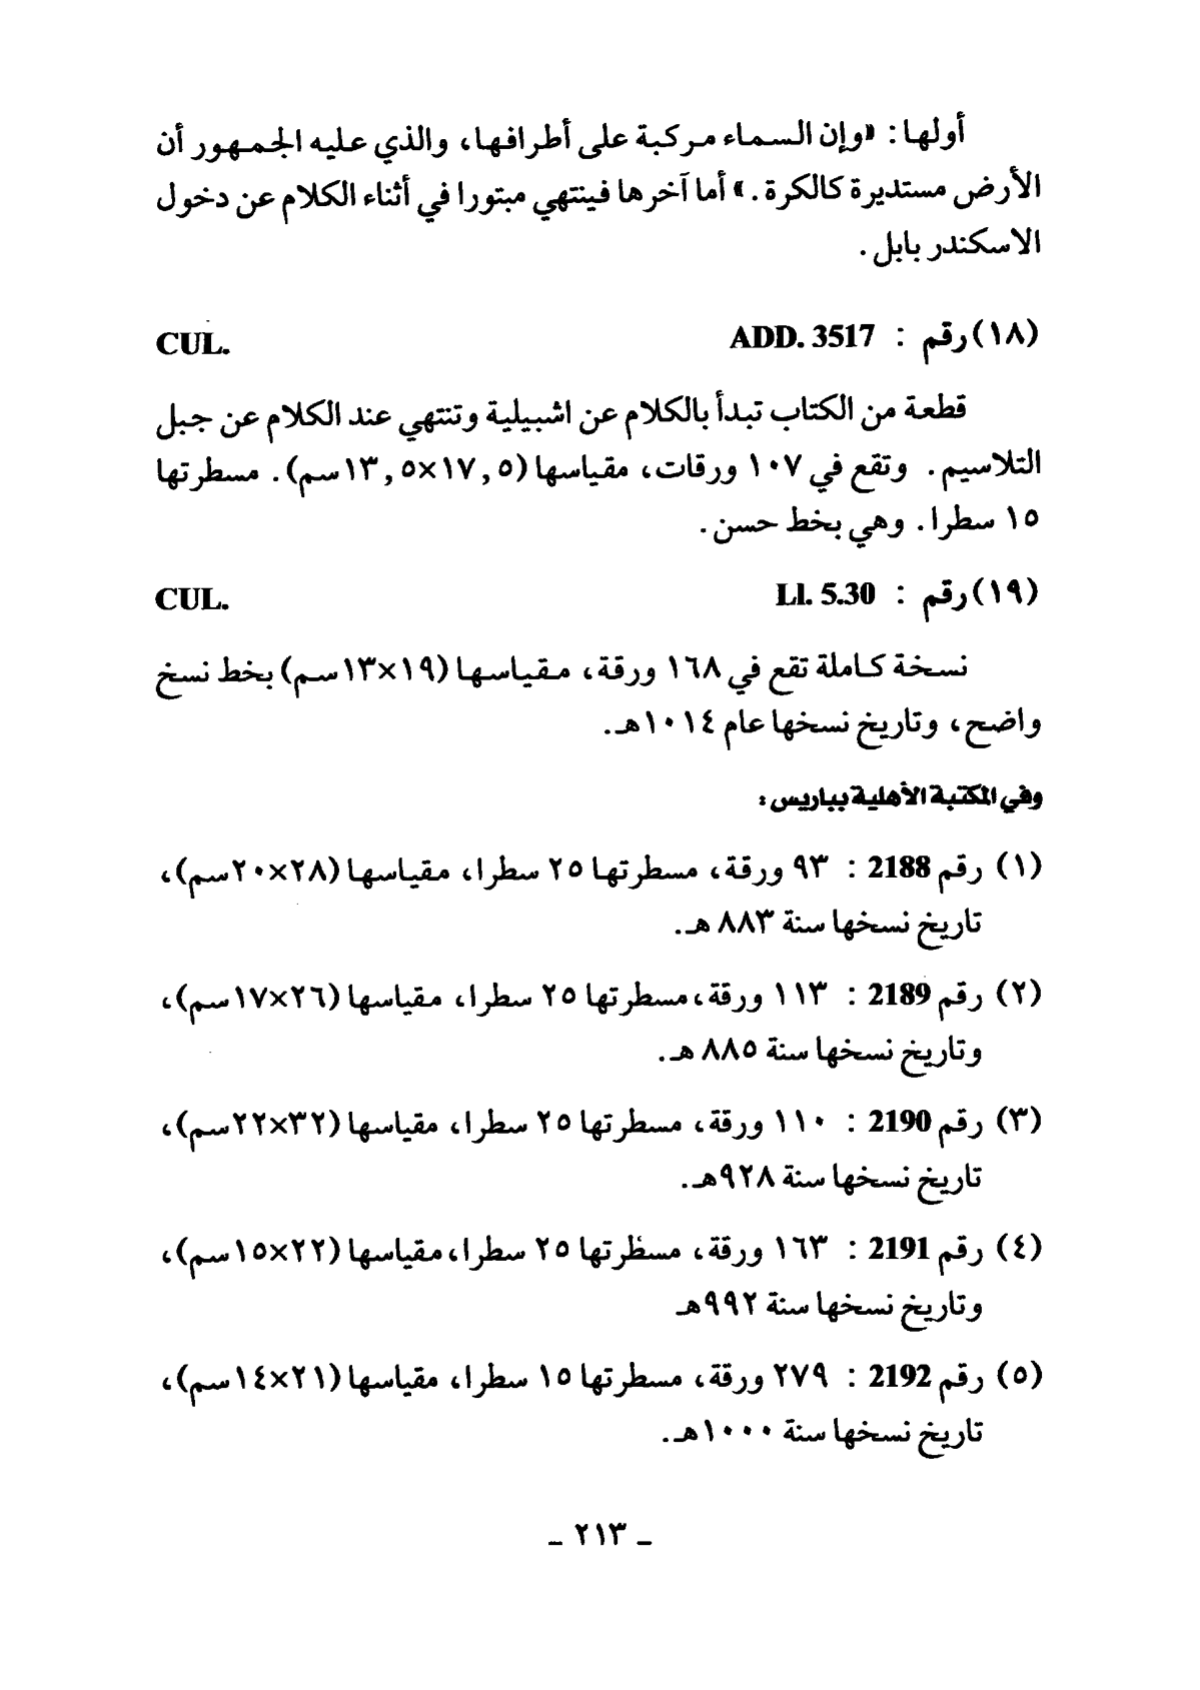 أولها: «وإن السماء مركبة على أطرافها، والذي عليه الجمهور أن
الأرض مستديرة كالكرة.» أما آخرها فينتهي مبتورا في أثناء الكلام عن دخول
الاسكندر بابل.
(١٨) رقم : ADD. 3517 CUL.
قطعة من الكتاب تبدأ بالكلام عن اشبيلية وتنتهي عند الكلام عن جبل
التلاسيم. وتقع في ١٠٧ ورقات، مقياسها (١٧,٥×١٣,٥سم). مسطرتها
١٥ سطرا. وهي بخط حسن.
(١٩) رقم : Ll. 5.30 CUL.
نسخة كاملة تقع في ١٦٨ ورقة، مقياسها (١٩×١٣سم) بخط نسخ
واضح، وتاريخ نسخها عام ١٠١٤هـ.
وفي المكتبة الأهلية بباريس:
(١) رقم 2188 : ٩٣ ورقة، مسطرتها ٢٥ سطرا، مقياسها (٢٨×٢٠سم)،
تاريخ نسخها سنة ٨٨٣ هـ.
(٢) رقم 2189 : ١١٣ ورقة، مسطرتها ٢٥ سطرا، مقياسها (٢٦×١٧سم)،
وتاريخ نسخها سنة ٨٨٥ هـ.
(٣) رقم 2190 : ١١٠ ورقة، مسطرتها ٢٥ سطرا، مقياسها (٣٢×٢٢سم)،
تاريخ نسخها سنة ٩٢٨هـ.
(٤) رقم 2191 : ١٦٣ ورقة، مسظرتها ٢٥ سطرا، مقياسها (٢٢×١٥سم)،
وتاريخ نسخها سنة ٩٩٢هـ
(٥) رقم 2192 : ٢٧٩ ورقة، مسطرتها ١٥ سطرا، مقياسها (٢١×١٤سم)،
تاريخ نسخها سنة ١٠٠٠هـ.
ـ ٢١٣ ـ